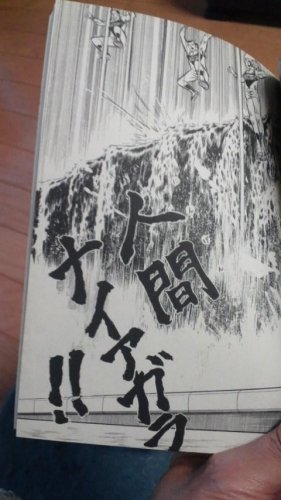 人間
ナイアガラ!!